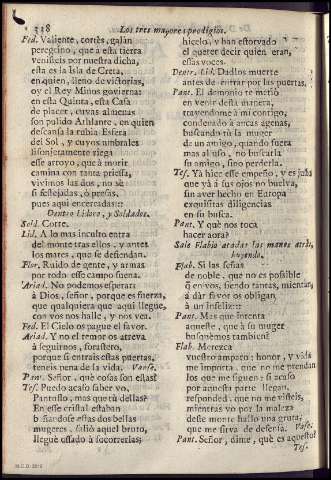 338
Los tres mayores prodigios.
Fed. Valiente, cortès, galàn
peregrino, que à esta tierra
venisteis por nuestra dicha,
esta es la Isla de Creta,
en quien, lleno de vitorias,
oy el Rey Minos goviernas
en esta Quinta, esta Casa
de placer, cuyas almenas
son pulido Athlante, en quien
descansa la rubia Esfera
del Sol, y cuyos umbrales
lisonjeramente riega
esse arroyo, que à morir
camina con tanta priessa,
vivimos las dos, no sè
si festejadas, ò presas,
pues aqui encerradas::
Dentro Lidoro, y Soldados.
Sold. Corre.
Lid. A lo mas inculto entra
del monte tras ellos, y antes
los mares, que se defiendan.
Flor. Ruido de gente, y armas
por todo esse campo suena.
Ariad. No podemos esperar
à Dios, señor, porque es fuerza,
que qualquiera que aqui llegue,
con vos nos halle, y nos vea.
Fed. El Cielo os pague el favor.
Ariad. Y no el temor os atreva
à seguirnos, forastero,
porque si entrais estas puertas,
teneis pena de la vida. Vanse.
Pant. Señor, què cosas son estas?
Tes. Puedo acaso saber yo,
Pantuflo, mas que tù dellas?
En esse cristal estaban
bañandose estas dos bellas
mugeres, saliò aquel bruto,
lleguè ossado à socorrerlas;
hicelo, y han estorvado
el querer decir quien eran,
essas voces.
Dentr. Lid. Dadlos muerte
antes de entrar por las puertas.
Pant. El demonio te metiò
en venir desta manera,
trayendome à mi contigo,
condenado à arcas agenas,
buscando tù la muger
de un amigo, quando fuera
mas al uso, no buscarla
su amigo, sino perderla.
Tes. Yà hice esse empeño, y es justo
que yà à sus ojos no buelva,
sin aver hecho en Europa
exquisitas diligencias
en su busca.
Pant. Y què nos toca
hacer aora?
Sale Flabio atadas las manos atràs,
huyendo.
Flab. Si las señas
de noble, que no es possible
q̃ en vos, siendo tantas, mientan,
à dàr favor os obligan,
à un infelice::
Pant. Mas que intenta
aqueste, que à su muger
busquèmos tambien?
Flab. Merezca
vuestro amparo: honor, y vida
me importa, que no me prendan
los que me siguen: si acaso
por aquesta parte llegan,
responded, que no me visteis,
mientras yo por la maleza
deste monte hallo una gruta
que me sirva de defensa. Vase.
Pant. Señor, dime, què es aquesto?
Tes.